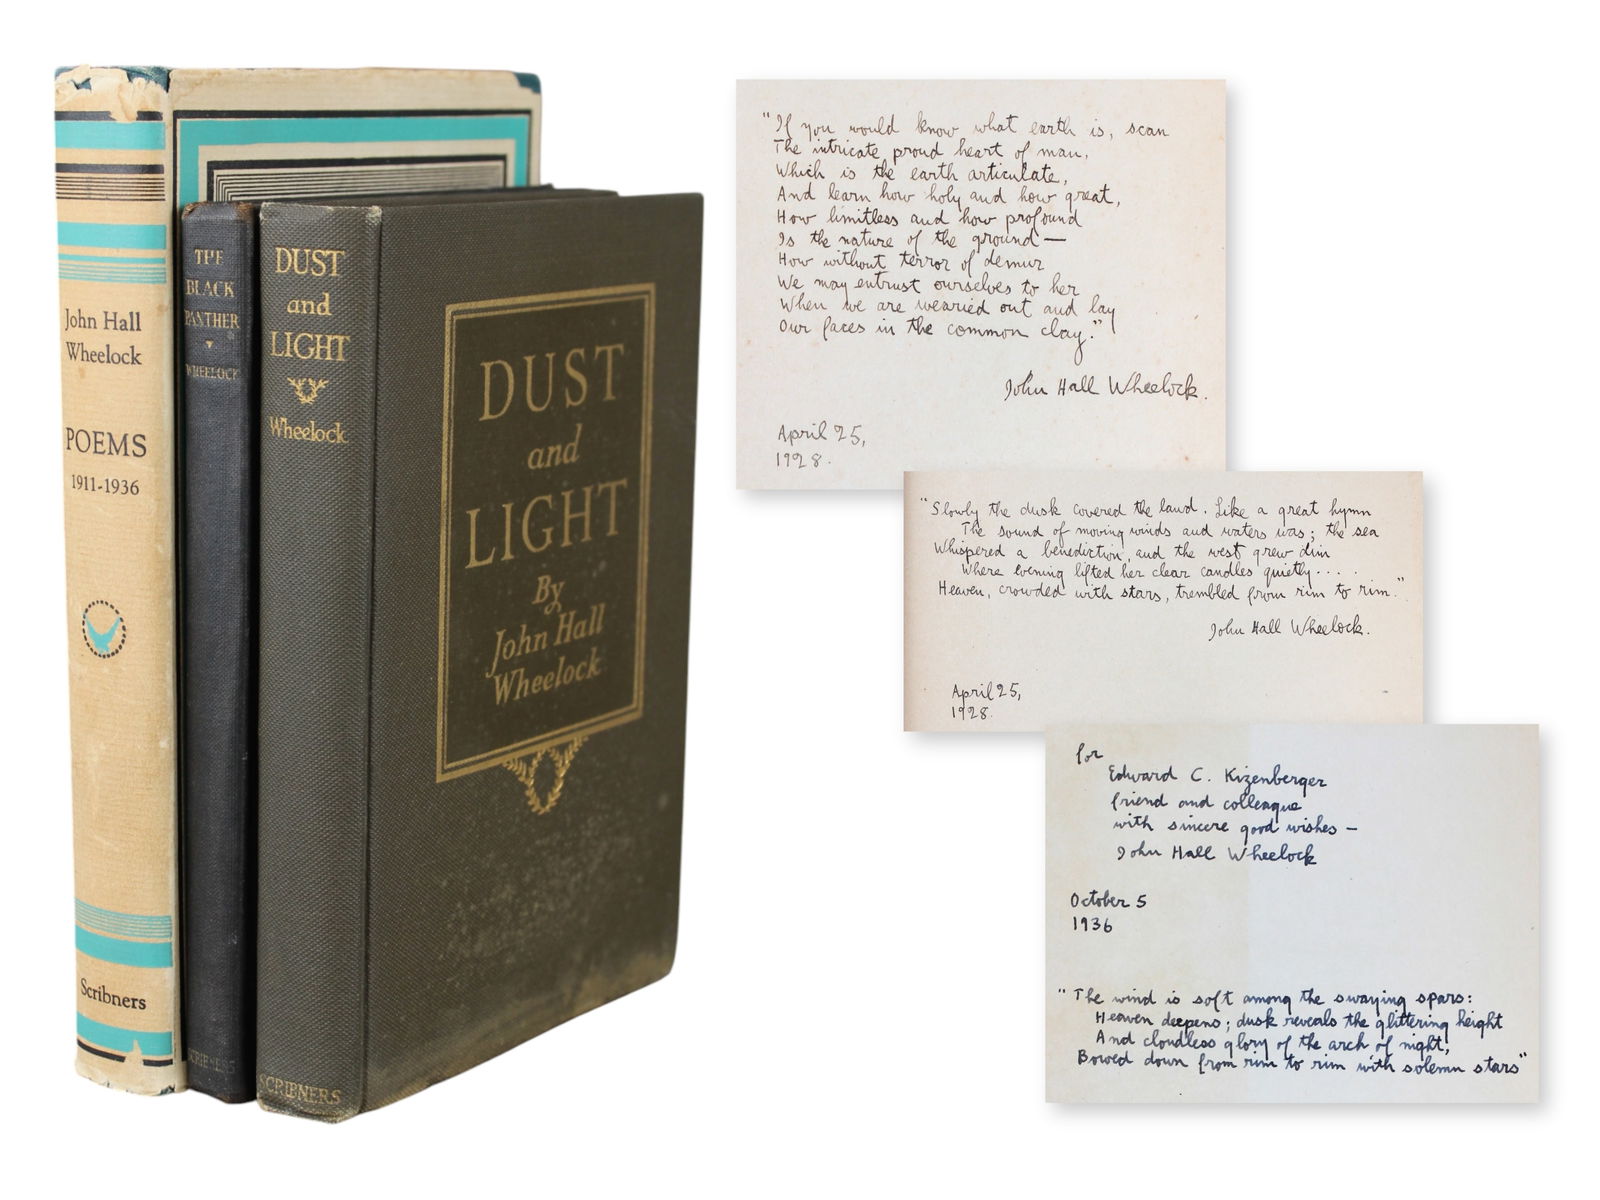 John Hall
Wheelock
POEMS
1911-1936
Scribners
THE
BLACK
PANTHER
WHEELOCK
SCRIBNERS
DUST
and
LIGHT
Wheelock
SCRIBNERS
DUST
and
LIGHT
By
John Hall
Wheelock
"If you would know what earth is, scan
The intricate proud heart of man,
Which is the earth articulate,
And learn how holy and how great,
How limitless and how profound
Is the nature of the ground—
How without terror of demur
We may entrust ourselves to her
When we are wearied out and lay
Our faces in the common clay."
John Hall Wheelock.
April 25,
1928.
"Slowly the dusk covered the land. Like a great hymn
The sound of moving winds and waters was; the sea
Whispered a benediction, and the west grew dim
Where evening lifted her clear candles quietly....
Heaven, crowded with stars, trembled from rim to rim."
John Hall Wheelock.
April 25,
1928.
for
Edward C. Kizenberger
friend and colleague
with sincere good wishes—
John Hall Wheelock
October 5
1936
"The wind is soft among the swaying spars:
Heaven deepens; dusk reveals the glittering height
And cloudless glory of the arch of night,
Bowed down from rim to rim with solemn stars"